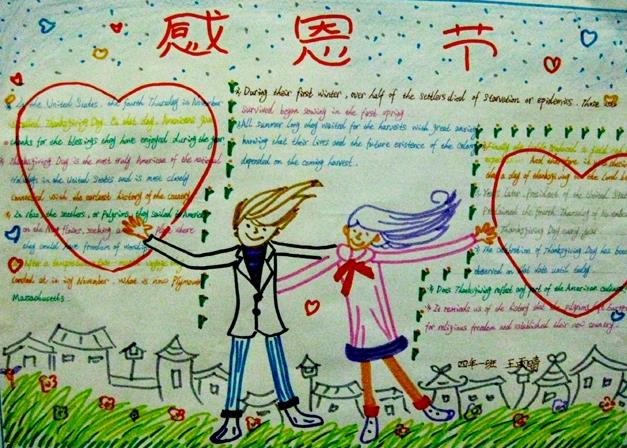 感恩节
In the United States, the fourth Thursday in November
is called Thanksgiving Day. On that day, Americans give
thanks for the blessings they have enjoyed during the year.
Thanksgiving Day is the most truly American of the national
Holidays in the United States and is most closely
connected with the earliest history of the country.
In 1620, the settlers, or Pilgrims, they sailed to America
on the May flower, seeking a place where
they could have freedom of worship.
After a tempestuous
landed at in icy November, what is now Plymouth
Massachusetts.
During their first winter, over half of the settlers died of starvation or epidemics. Those who
survived began sowing in the first spring.
All summer long they waited for the harvests with great anxiety
knowing that their lives and the future existence of the colony
depended on the coming harvest.
Finally the fields produced a yield
And therefore it was decided
that a day of thanksgiving to the Lord be
Years later, President of the United States
Proclaimed the fourth Thursday of November
Thanksgiving Day every year.
The celebration of Thanksgiving Day has been
observed on that date until today.
Does Thanksgiving reflect any part of the American culture
It reminds us of the history that the pilgrims
for religious freedom and established their new country.
四年一班 王